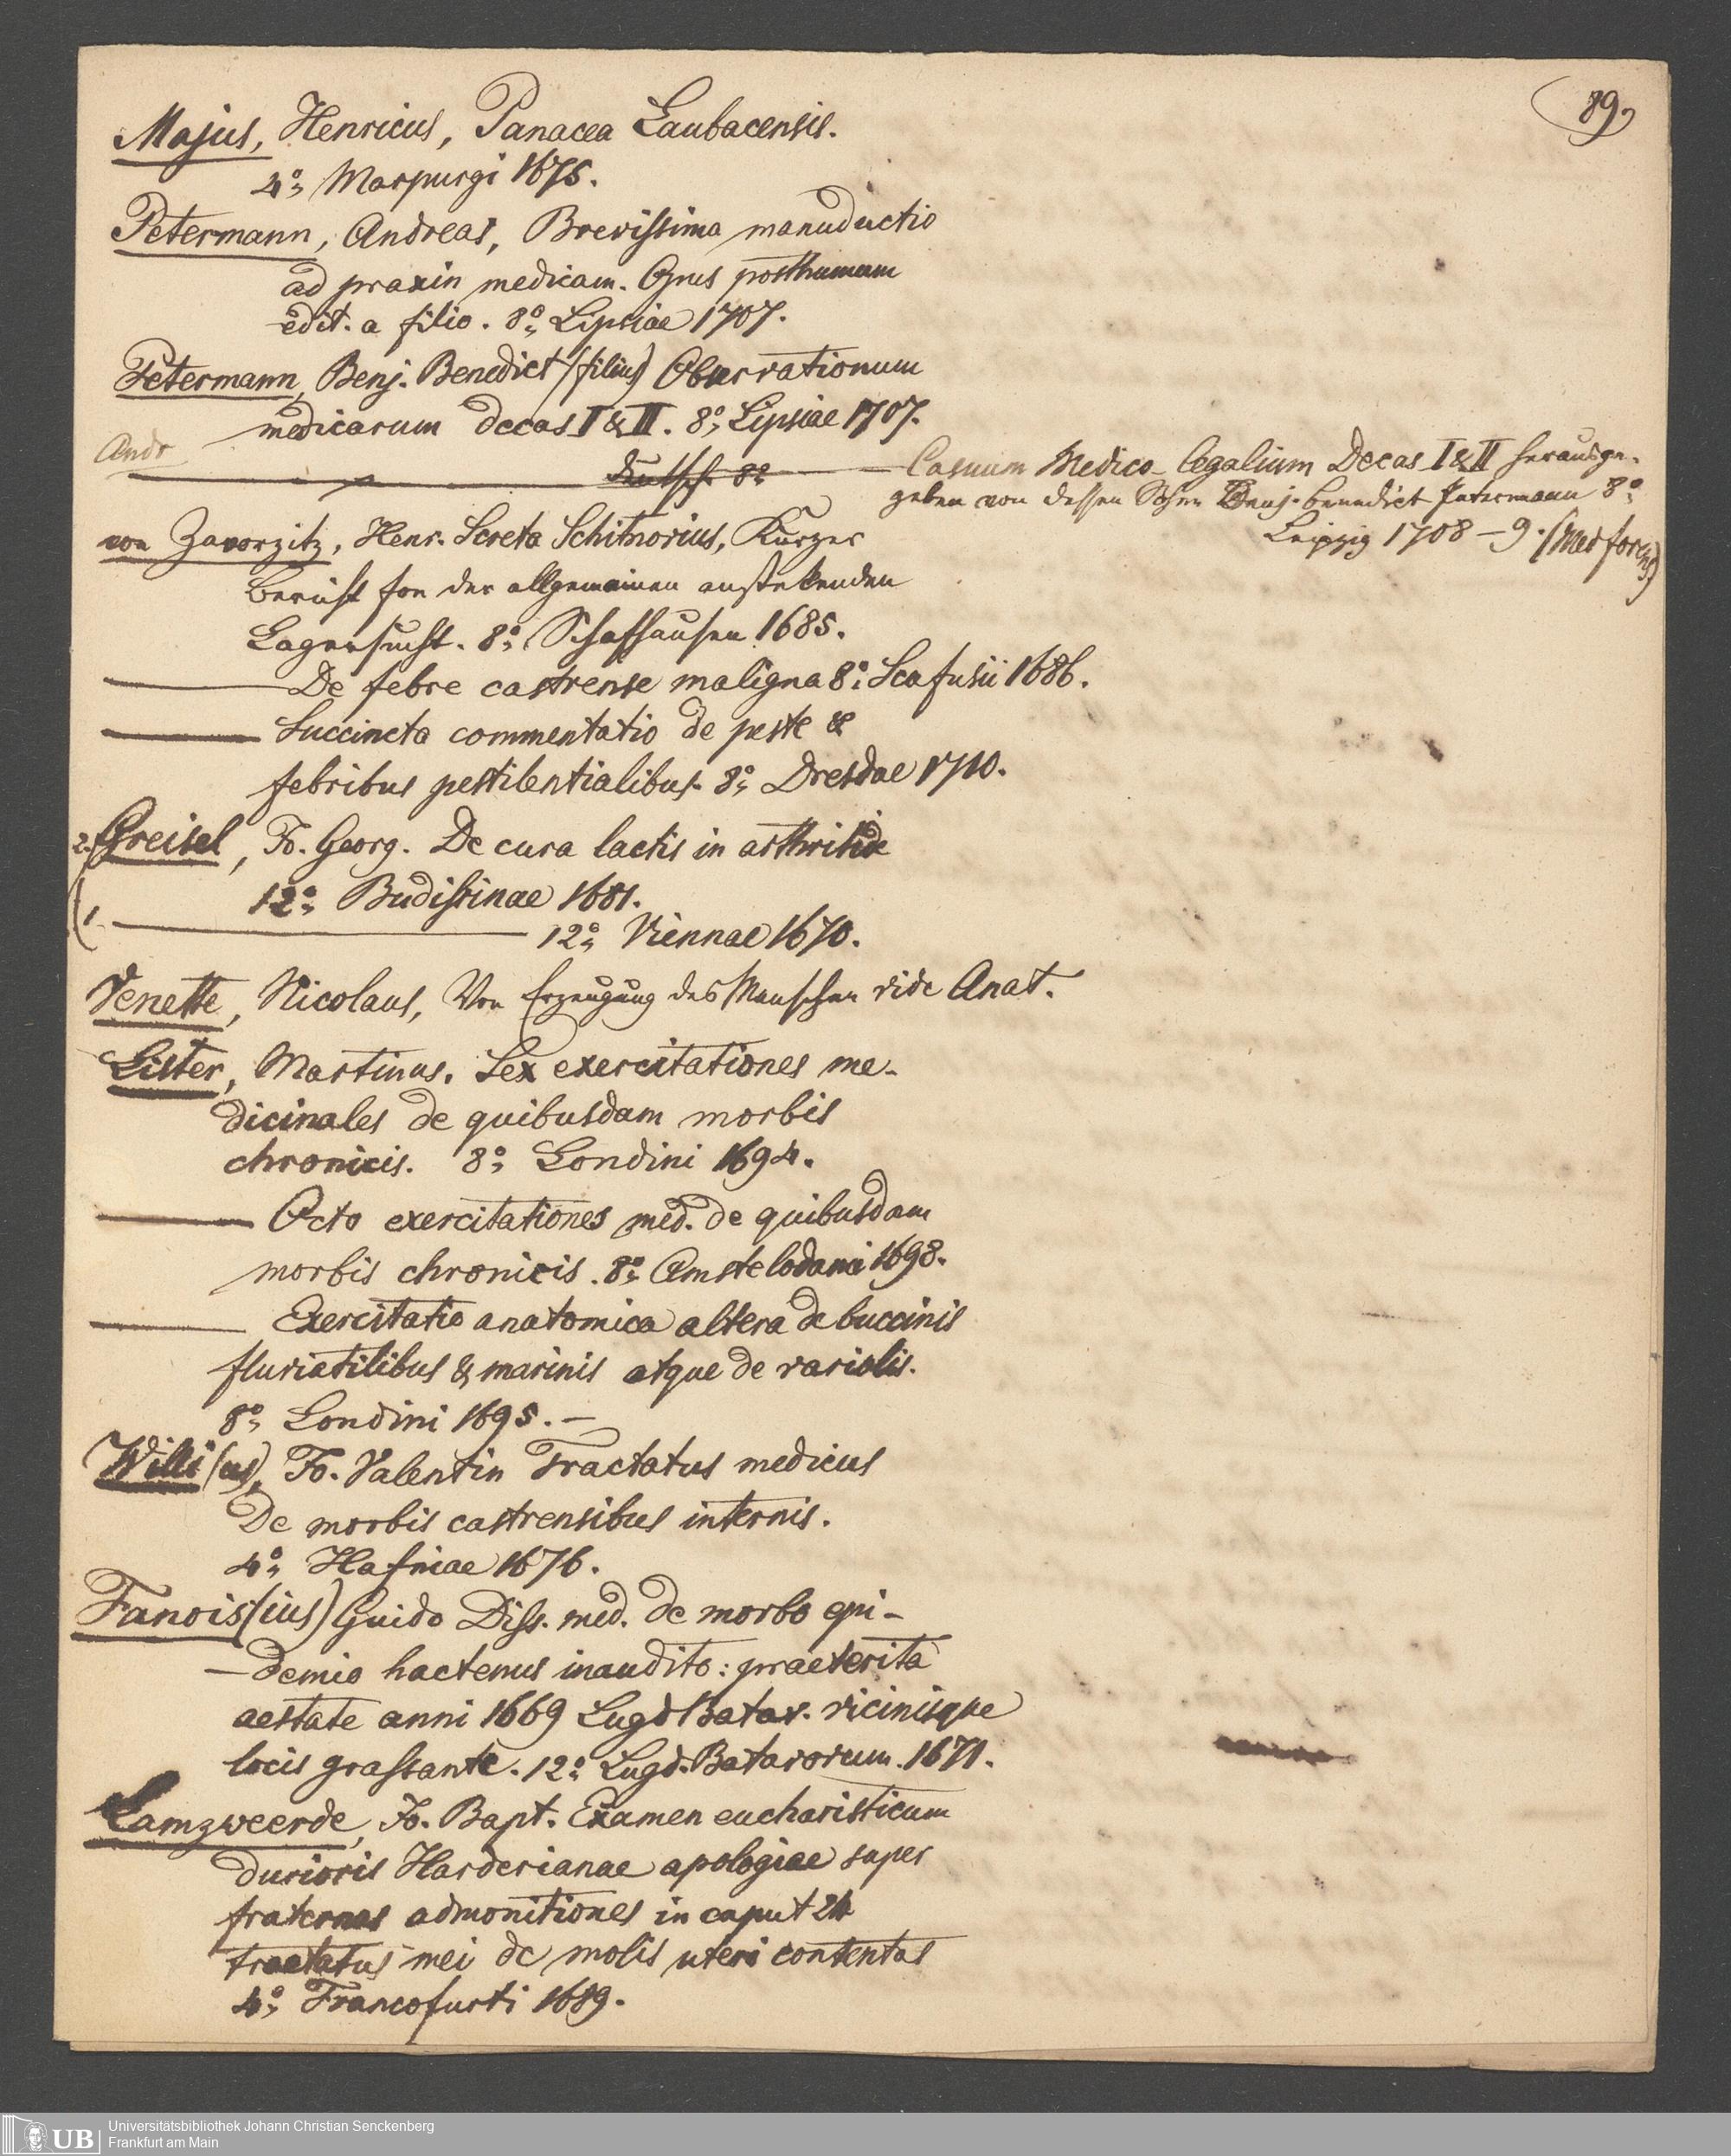 89.
Majus, Henricus, Panacea Laubacensis.
4° Marpurgi 1675.
Petermann, Andreas, Brevissima manuductio
ad praxin medicam. Opus posthumum
edit. a filio. 8° Lipsiae 1707.
Petermann, Benj. Benedict (filius) Observationum
medicarum decas I & II. 8° Lipsiae 1707.
Andr
Deutsch 8° — Casuum Medico-legalium Decas I & II herausge-
geben von dessen Sohn Benj. Benedict Petermann 8°
Leipzig 1708-9. (Med forens)
von Zavorzitz, Henr. Screta Schitnovius, Kurzer
Bericht fon der allgemeinen anstekenden
Lagersucht. 8° Schafhausen 1685.
— De febre castrense maligna 8° Scafusii 1686.
— Succincta commentatio de peste &
febribus pestilentialibus. 8° Dresdae 1710.
2. Greisel, Jo. Georg. De cura lactis in arthritide
12° Budissinae 1681.
(1. — 12° Viennae 1670.
Venette, Nicolaus, Von Erzeugung des Menschen vide Anat.
Lister, Martinus. Sex exercitationes me-
dicinales de quibusdam morbis
chronicis. 8° Londini 1694.
— Octo exercitationes med. de quibusdam
morbis chronicis. 8° Amstelodami 1698.
— Exercitatio anatomica altera de buccinis
fluviatilibus & marinis atque de variolis.
8° Londini 1695. —
Willi(us), Jo. Valentin Tractatus medicus
De morbis castrensibus internis.
4° Hafniae 1676.
Fanois(ius) Guido Diss. med. de morbo epi-
-demio hactenus inaudito: praeterita
aestate anni 1669 Lugd Batav. vicinisque
locis grassante. 12° Lugd. Batavorum. 1671.
Lamzweerde, Jo. Bapt. Examen eucharisticum
durioris Harderianae apologiae super
fraternas admonitiones in caput 24
tractatus mei de molis uteri contentas
4° Francofurti 1689.
UB Universitätsbibliothek Johann Christian Senckenberg
Frankfurt am Main